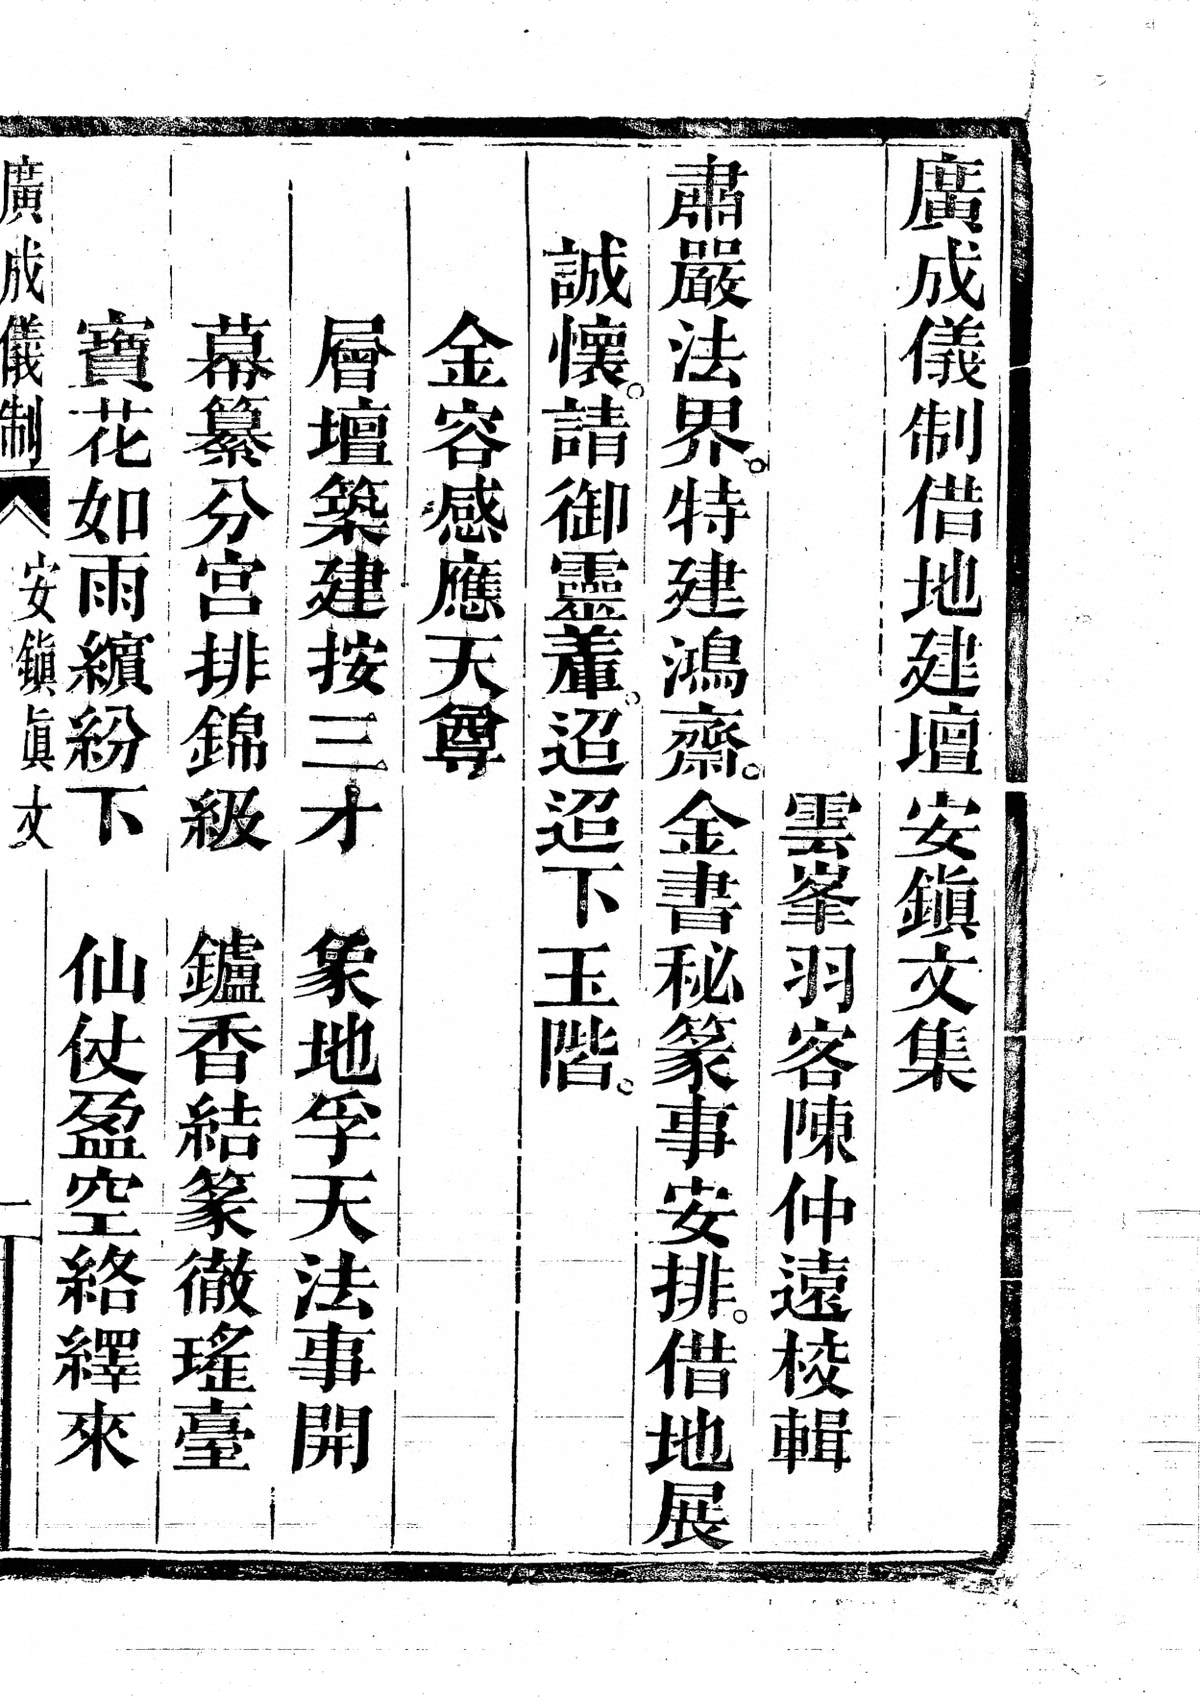 廣成儀制借地建壇安鎭文集
雲峯羽客陳仲遠校輯
肅嚴法界。特建鴻齋。金書秘篆事安排。借地展
誠懷。請御靈輂。迢迢下玉階。
金容感應天尊
層壇築建按三才　象地孚天法事開
幕纂分宮排錦級　鑪香結篆徹瑤臺
寶花如雨繽紛下　仙仗盈空絡繹來
廣成儀制　安鎭眞文　一